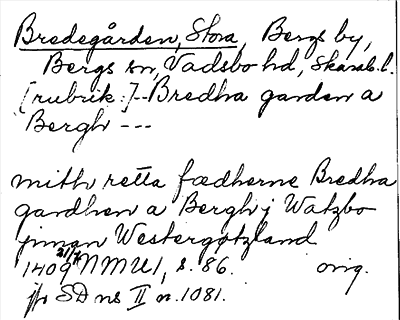 Bredegården, Stora, Bergs by,
Bergs sn, Vadsbo hd, Skarab. l.
[rubrik:] --Bredha garden a
Bergh ---
mith retta fædherne Bredha
gardhen a Bergh j Watzbo
jnnan Westergøtzland
1409 21/7 NMU1, s. 86. orig.
jfr SD ns II n. 1081.